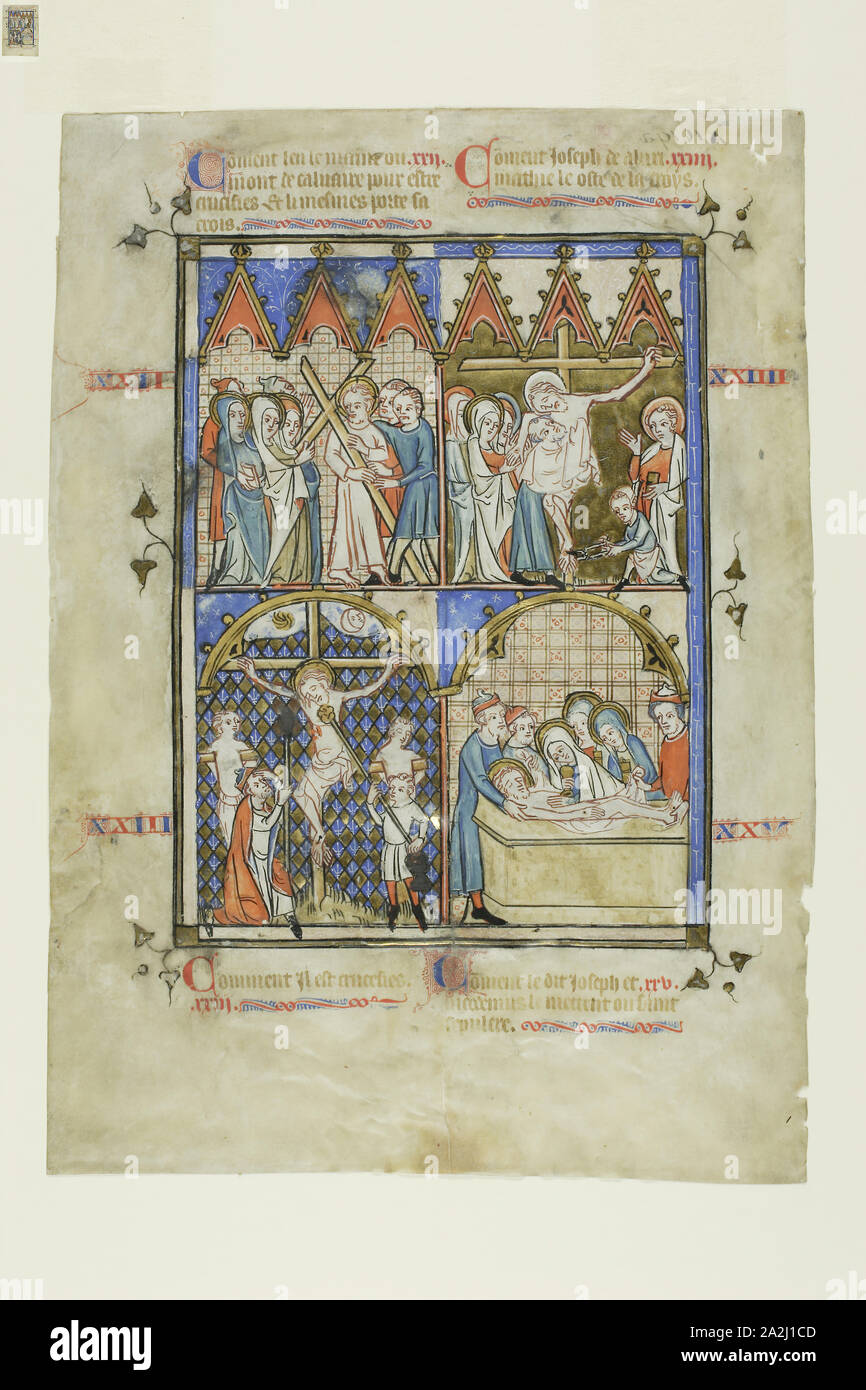 Coment len le maine ou .xxii.
mont de calvaire pour estre
crucifies & li mesmes porte sa
crois.
Coment Joseph de abari .xxiiii.
mathie le oste de la croys.
XXII
XXIIII
XXIII
XXV
Comment Il est crucefies.
.xxiii.
Coment le dit Joseph et .xxv.
le mettent ou saint
sepulcre.
a
alamy
alamy stock photo
Image ID: 2A2J1CD
www.alamy.com